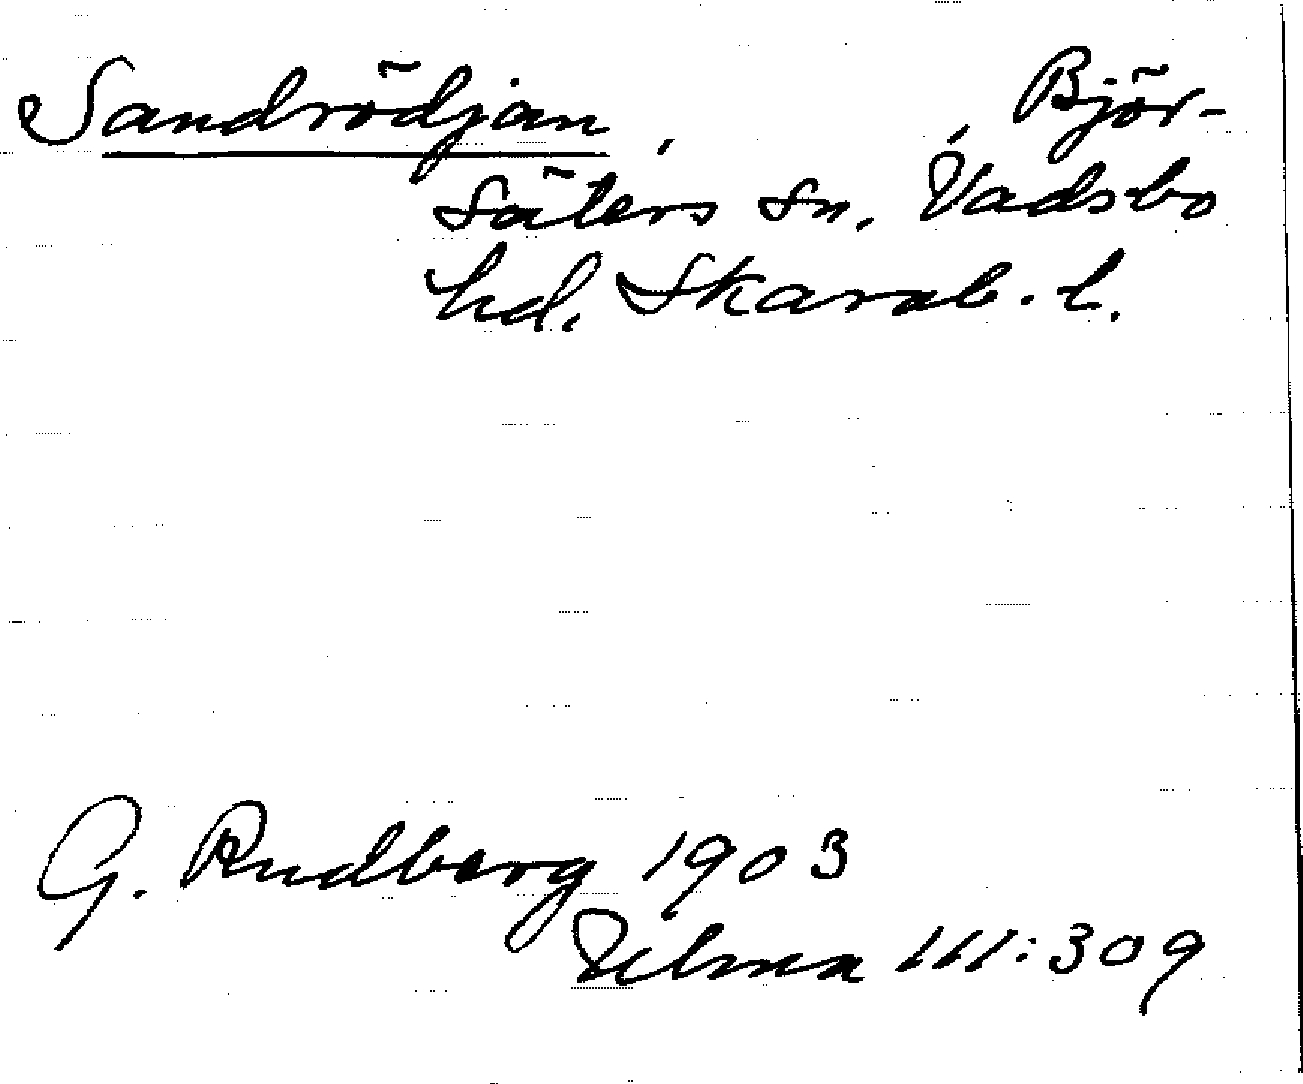 Sandrödjan, Björ-
säters sn. Vadsbo
hd. Skarab. l.
G. Rudberg 1903
Ulma 111:309